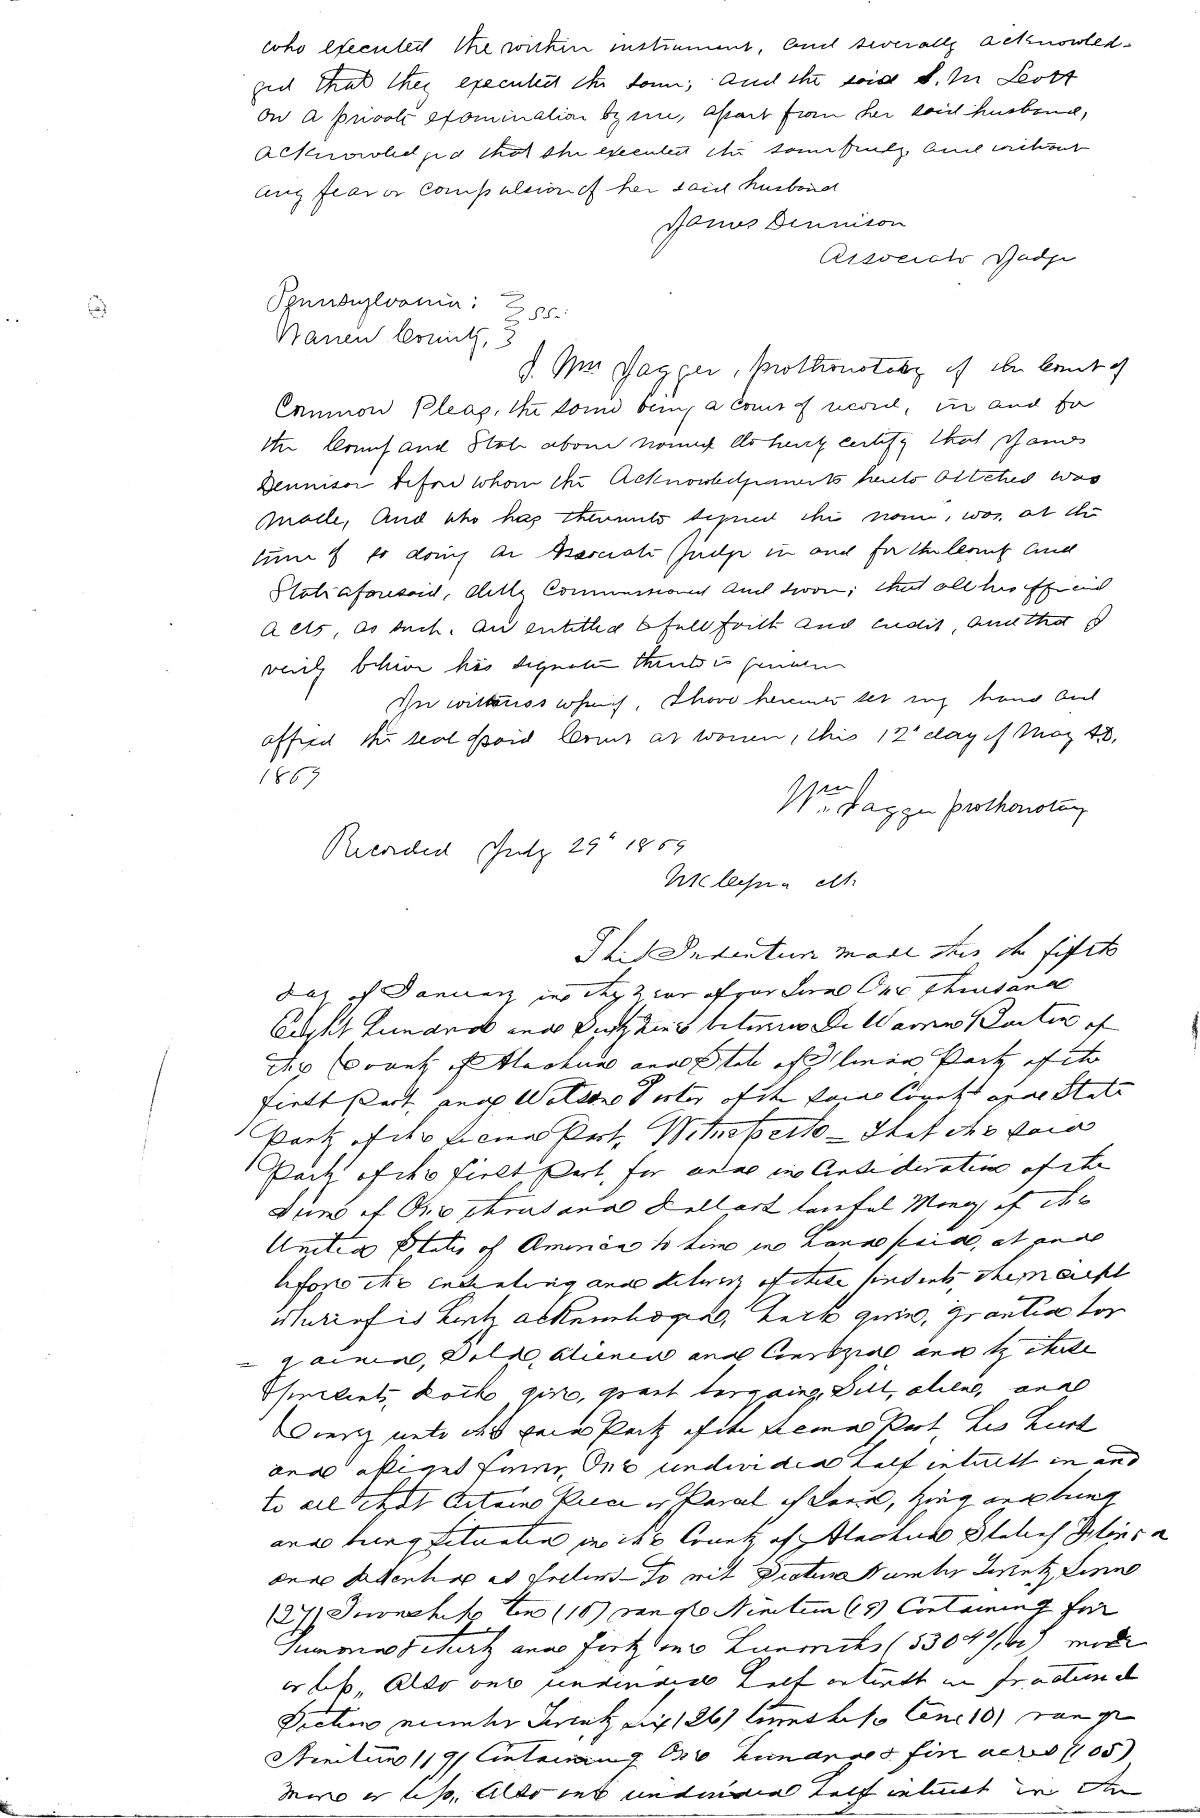 who executed the within instrument, and severally acknowled-
ged that they executed the same; and the said S. M Scott
on a private examination by me, apart from her said husband,
acknowledged that she executed the same freely and without
any fear or compulsion of her said husband
James Dennison
Associate Judge
Pennsylvania: } ss.:
Warren County, }
I. Wm Jagger, prothonotary of the Court of
Common Pleas, the same being a court of record, in and for
the County and State above named do hereby certify that James
Dennison before whom the Acknowledgements hereto attched was
made, and who has thereunto signed his name, was, at the
time of so doing an Associate Judge in and for the County and
State aforesaid, duly commissioned and sworn; that all his official
acts, as such, are entitled to full faith and credit, and that I
verily believe his signature thereto is genuine
In witness whereof, I have hereunto set my hand and
affixed the seal of said Court at Warren, this 12" day of May A.D.
1869
Wm Jagger prothonotary
Recorded July 29" 1869
Clk
This Indenture made this the fifth
day of January in the year of our Lord One thousand
Eight hundred and between De Warren of
the County of Alachua and State of Florida Party of the
first Part, and Watson Porter of the said County and State
Party of the second Part, Witnesseth – That the said
Party of the first Part, for and in Consideration of the
Sum of One thousand Dollars lawful Money of the
United States of America to him in hand paid, at and
before the ensealing and delivery of these presents, the receipt
whereof is hereby acknowledged, hath given, granted bar
= gained, Sold, aliened and Conveyed and by these
Presents, doth give, grant bargain, Sell, alien, and
Convey unto the said Party of the second Part, his heirs
and assigns forever, One undivided half interest in and
to all that Certain Piece or Parcel of Land, lying and being
and being Situated in the County of Alachua State of Florida
and described as follows – To wit Section Number Twenty Seven
(27) Township ten (10) range Nineteen (19) Containing five
hundred & thirty and forty one hundredths (530 40/100) more
or less, Also one undivided half interest in fractional
Section number Twenty six (26) township ten (10) range
Nineteen (19) Containing One hundred & five acres (105)
more or less, Also one undivided half interest in the